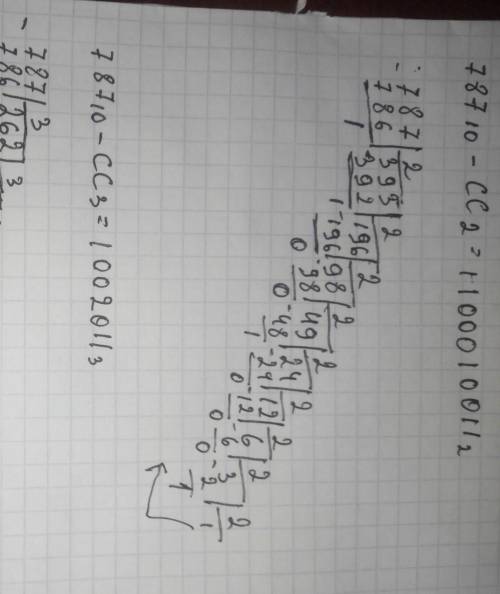 787₁₀ - CC₂ = 1100010011₂
- 787|2
786|393|2
1 392|196|2
1 -196|98|2
0 -98|49|2
0 -48|24|2
1 -24|12|2
0 -12|6|2
0 -6|3|2
0 -2|1
1
787₁₀ - CC₃ = 1002011₃
- 787|3
786|262|3